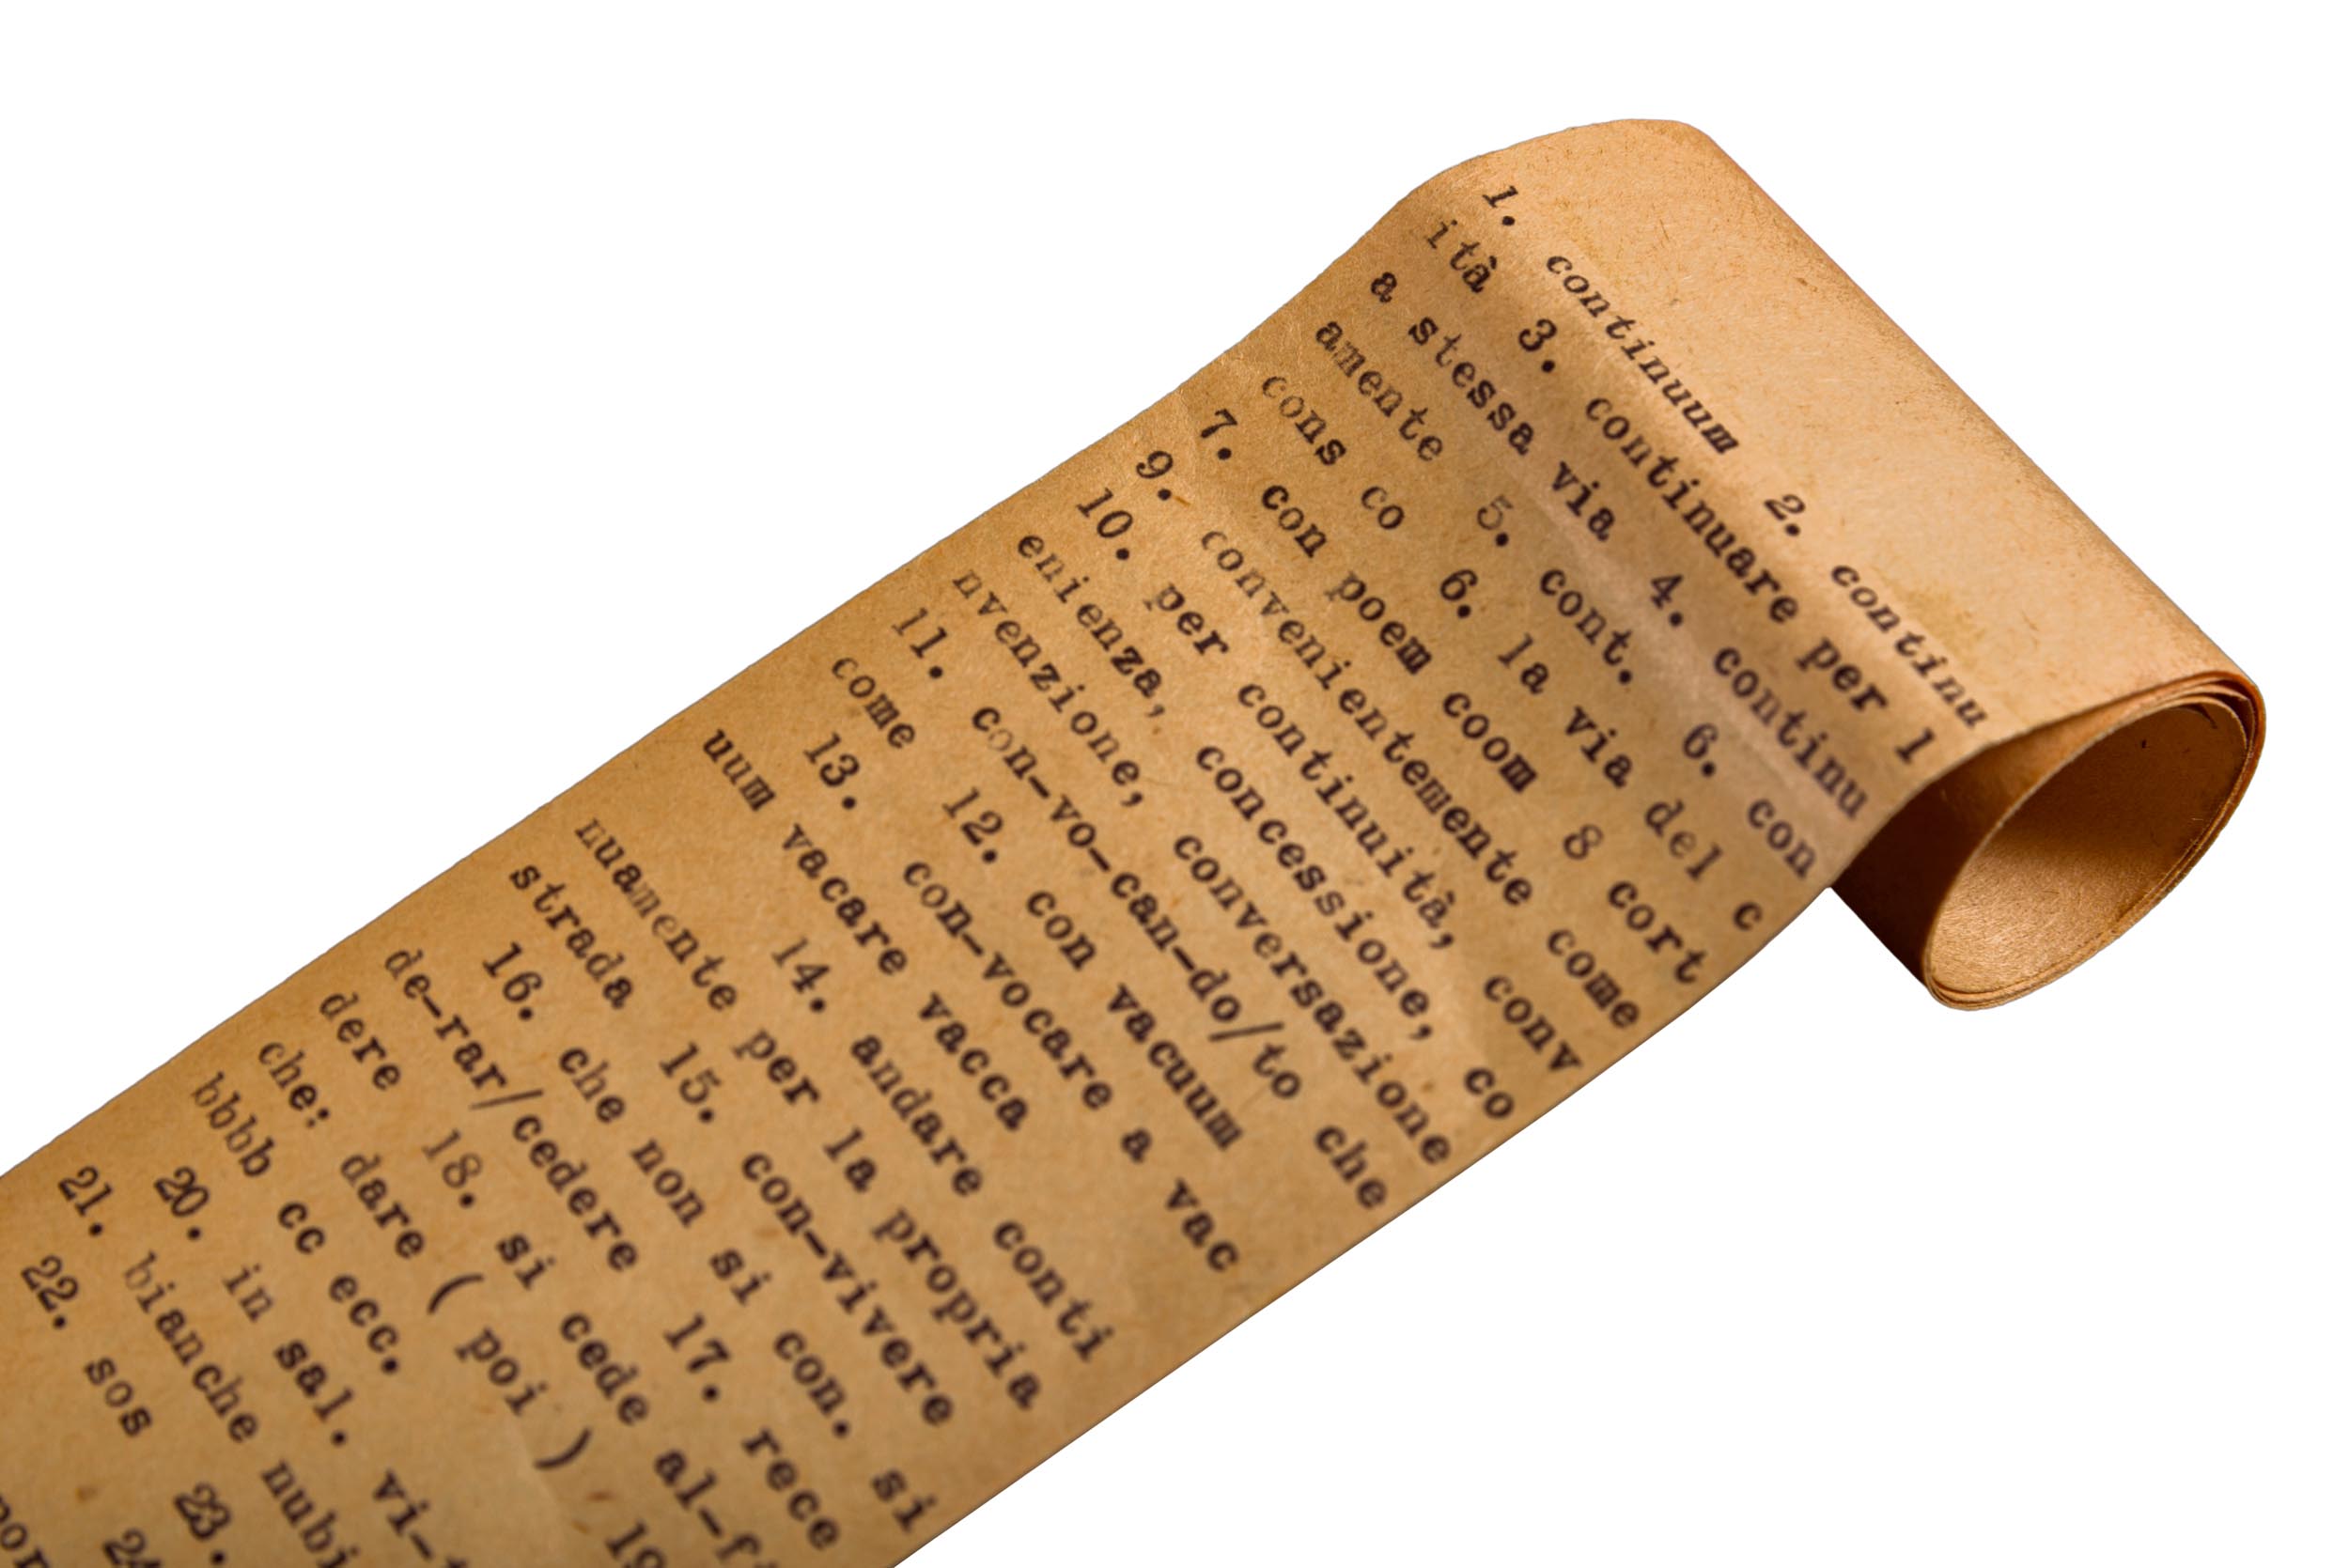 1. continuum 2. continu
ità 3. continuare per l
a stessa via 4. continu
amente 5. cont. 6. con
cons co 6. la via del c
7. con poem coom 8 cort
9. convenientemente come
10. per continuità, conv
enienza, concessione, co
nvenzione, conversazione
11. con-vo-can-do/to che
come 12. con vacuum
13. con-vocare a vac
uum vacare vacca
14. andare conti
nuamente per la propria
strada 15. con-vivere
16. che non si con. si
de-rar/cedere 17. rece
dere 18. si cede al-fi
che: dare ( poi ) 19
bbbb cc ecc.
20. in sal. vi-
21. bianche nubi
22. sos 23.
24